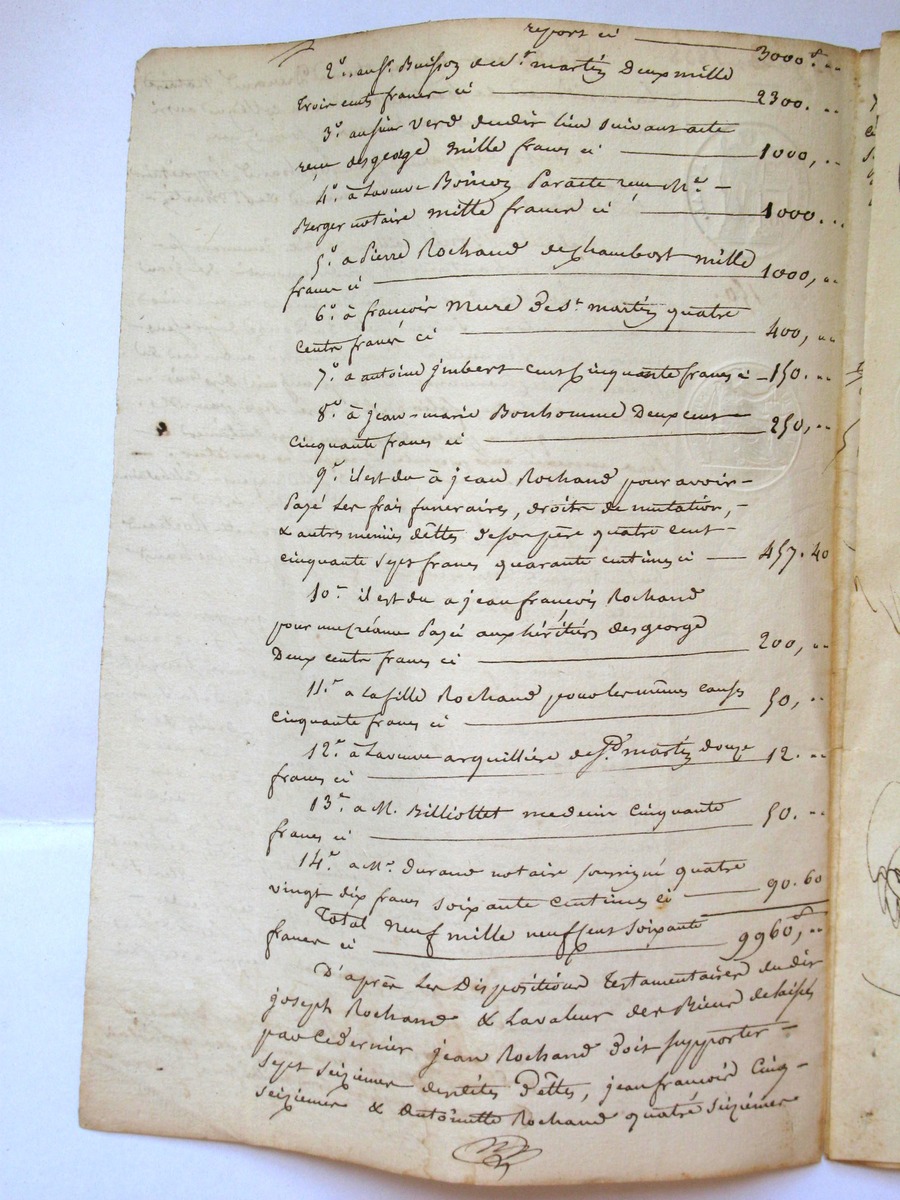 report ci 3000.f ..
2.o au sr. Buisson de St. martin Deux mille
trois cents francs ci 2300. ..
3.o au sieur Verd dudit lieu suivant acte
reçu desgeorge mille francs ci 1000, ..
4.o à La veuve Boinon Par acte reçu Me. –
Berger notaire mille francs ci 1000. ..
5.o a Pierre Rochand de Chambost mille
francs ci 1000, ..
6.o à francois mure De St. martin quatre
cents francs ci 400, ..
7.o a antoine jmbert cent cinquante francs ci – 150. ..
8.o à jean-marie Bonhomme Deux cent
cinquante francs ci 250, ..
9.o il est du à jean Rochand pour avoir –
Payé Les frais funeraires, droits de mutation, –
& autres menües dêttes de son père quatre cent –
cinquante sept francs quarante centimes ci 457. 40
10.o il est du a jean francois Rochand
pour une créance Payé aux héritiers desgeorge
Deux cents francs ci 200, ..
11.o a La fille Rochand pour les mêmes causes
cinquante francs ci 50, ..
12.o à La veuve arquilliere de St. martin douze
francs ci 12. ..
13.o a M. Billiottet medecin cinquante
francs ci 50. ..
14.o a Me. durand notaire soussigné quatre
vingt dix francs soixante centimes ci 90. 60
Total neuf mille neuf cent soixante
francs ci 9960,f ..
D'après Les Dispositions testamentaires dudit
joseph Rochand & La valeur des Biens delaissés
par ce dernier jean Rochand Doit supporter –
sept seiziemes desdites Dêttes, jean francois cinq –
seiziemes & Antoinette Rochand quatre seiziemes